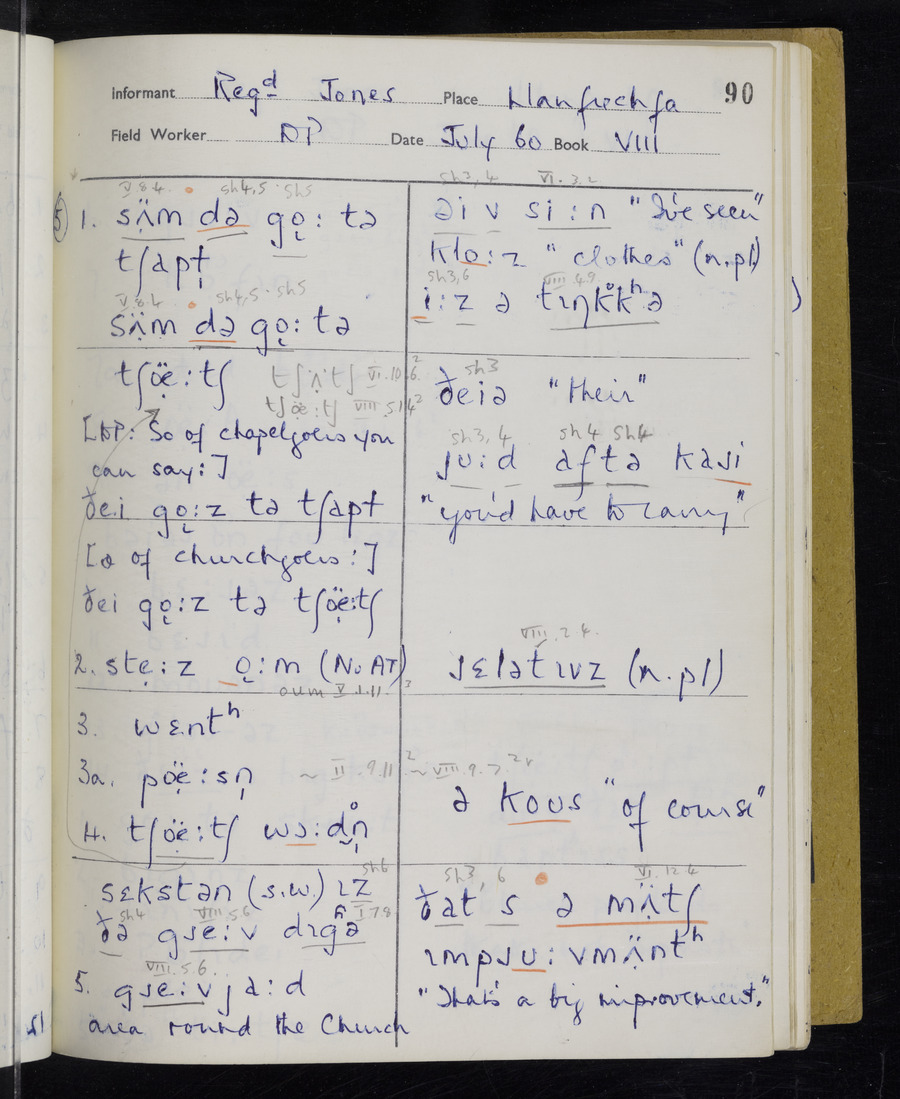 Informant Regd Jones Place Llanfrechfa 90
Field Worker DP Date July 60 Book VIII
V.8.4. sh4,5 · sh5
⑤ 1. sʌ̈m də gọ: tə
tʃapɫ
V.8.4 sh4,5 · sh5
sʌ̈m də gọ: tə
tʃœ̣̈:tʃ tʃʌ̈·tʃ VI.10.6.2
tʃœ̈:tʃ VIII.5.1.4²
[DP: So of chapelgoers you
can say:]
ðei gọ:z tə tʃapɫ
[& of churchgoers:]
ðei gọ:z tə tʃœ̣̈:tʃ
2. stẹ:z ọ:m (No AT)
oum V.1.11.³
3. wɛntʰ
3a. pœ̣̈:sn̩ ~ II.9.11² ~ VIII.9.7.2v
4. tʃœ̣̈:tʃ wɔ:dn̩
sh6
sɛkstən (s.w.) ɪz
sh4 VIII.5.6 I.7.8
ðə gɹe:v dɪgə
VIII.5.6.
5. gɹe:vjɑ:d
area round the Church
sh3, 4 VI.3.2
əi v si:n "I've seen"
klo:z "clothes" (n.pl)
sh3,6 VIII.4.9
i:z ə tɪŋk̊kʰə
sh3
ðeiə "their"
sh3,4 sh4 sh4
ju:d aftə kaɹi
"you'd have to carry"
VIII.2.4.
ɹɛlətɪvz (n.pl)
ə kous "of course"
sh3, 6 VI.12.4
ðat s ə mʌ̈tʃ
ɪmpɹu:vmʌ̈ntʰ
"That's a big improvement."